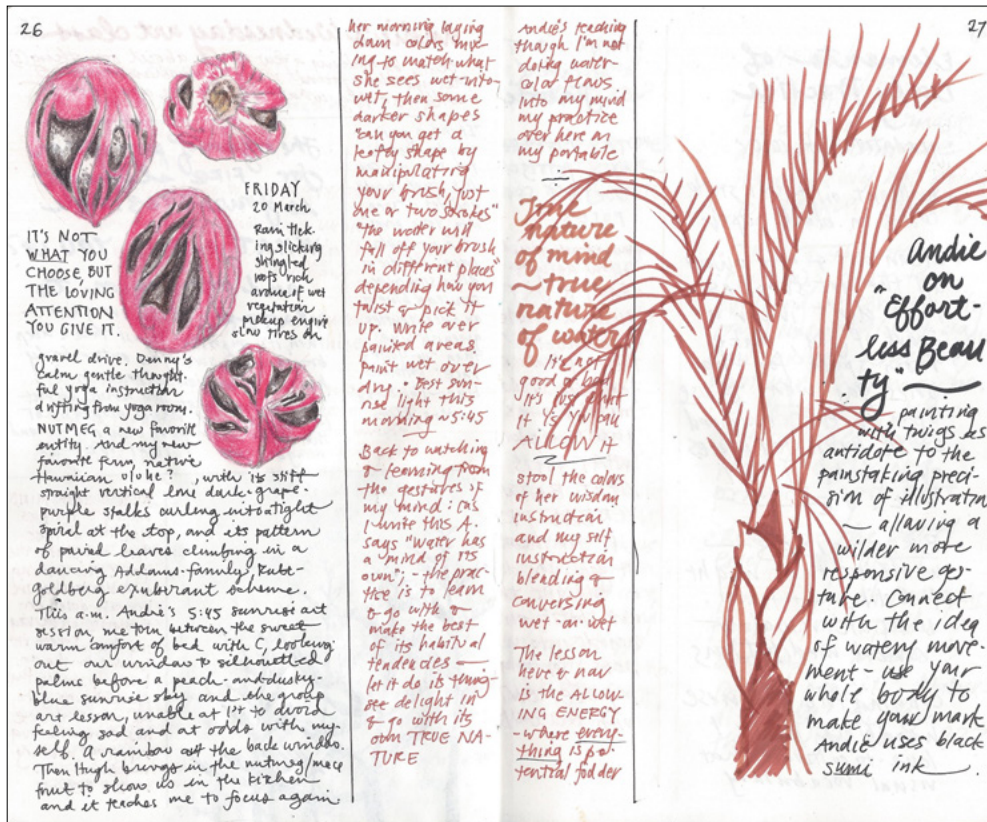 26
IT'S NOT
WHAT YOU
CHOOSE, BUT
THE LOVING
ATTENTION
YOU GIVE IT.
FRIDAY
20 March
Rain tick-
ing slicking
shingled
roofs rich
aroma of wet
vegetation
pickup engine
slow tires on
gravel drive. Denny's
calm gentle thought-
ful yoga instruction
drifting from yoga room.
NUTMEG a new favorite
entity. And my new
favorite fern, native
Hawaiian uluhe?, with its stiff
straight vertical line dark-grape-
purple stalks curling into a tight
spiral at the top, and its pattern
of paired leaves climbing in a
dancing Addams-family Rube-
goldberg exuberant scheme.
This a.m. Andie's 5:45 sunrise art
session, me torn between the sweet
warm comfort of bed with C, looking
out our window to silhouetted
palms before a peach-and-dusty-
blue sunrise sky and the group
art lesson, unable at 1st to avoid
feeling sad and at odds with my-
self. A rainbow out the back window.
Then Hugh brings in the nutmeg/mace
fruit to show us in the kitchen
and it teaches me to focus again
her morning laying
down colors mix-
ing to match what
she sees wet-into-
wet, then some
darker shapes
"can you get a
leafy shape by
manipulating
your brush, just
one or two strokes"
"the water will
fall off your brush
in different places"
depending how you
twist & pick it
up. Write over
painted areas
paint wet over
dry. • Best sun-
rise light this
morning ~5:45
Back to watching
& learning from
the gestures of
my mind: (as
I write this A.
says "water has
a mind of its
own"; - the prac-
tice is to learn
to go with &
make the best
of its habitual
tendencies —
let it do its thing-
see delight in
& go with its
own TRUE NA-
TURE
Andie's teaching
though I'm not
doing water-
color flows
into my mind
my practice
over here on
my portable
True
nature
of mind
~ true
nature
of water
It's not
good or bad
it's just what
it is you
ALLOW it
stool the colors
of her wisdom
instruction
and my self
instruction
blending &
conversing
wet-on-wet
The lesson
here & now
is the ALLOW-
ING ENERGY
-where every-
thing is po-
tential fodder
27
Andie
on
"Effort-
less Beau
ty"
painting
with twigs as
antidote to the
painstaking preci-
sion of illustration
— allowing a
wilder more
responsive ges-
ture. Connect
with the idea
of watery move-
ment - use your
whole body to
make your mark
Andie uses black
sumi ink